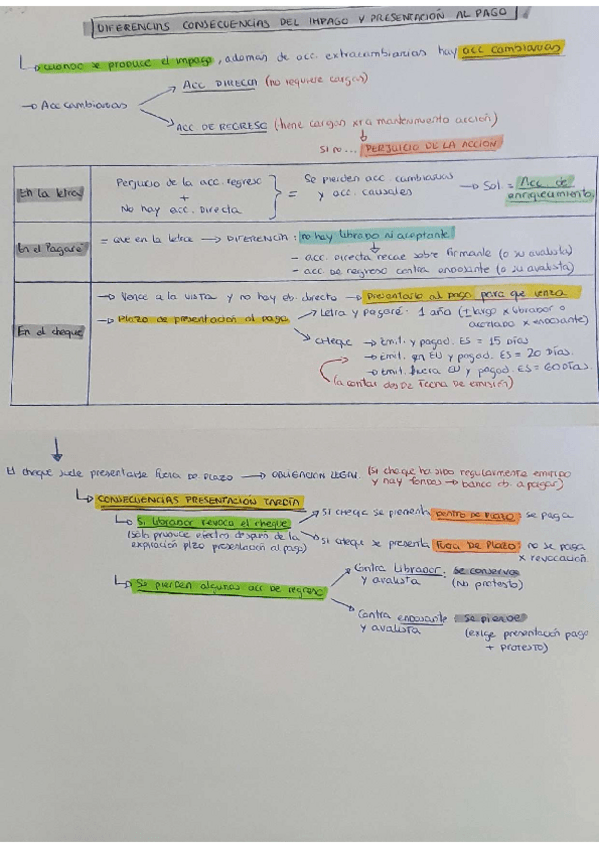 DIFERENCIAS CONSECUENCIAS DEL IMPAGO Y PRESENTACIÓN AL PAGO
cuando se produce el impago, además de acc. extracambiarias hay acc cambiarias
→ Acc cambiarias
→ ACC DIRECTA (no requiere cargas)
→ ACC. DE REGRESO (tiene cargas xra mantenimiento acción)
↓
SI NO... PERJUICIO DE LA ACCIÓN
En la letra
Perjucio de la acc. regreso
+
No hay acc. Directa
} =
Se pierden acc. cambiarias
y acc. causales
→ Sol. = Acc. de
enriquecimiento
En el Pagaré
= que en la letra → DIFERENCIA: no hay librado ni aceptante
- acc. Directa recae sobre firmante (o su avalista)
- acc DE regreso contra endosante (o su avalista)
En el cheque
→ Vence a la vista y no hay ob. directo → Presentarlo al pago para que venza
→ Plazo de presentación al pago
→ Letra y pagaré: 1 año (± largo x librador o
acortado x endosante)
→ cheque → Emit. y pagad. ES = 15 DÍAS
→ Emit. en EU y pagad. ES = 20 Días.
→ Emit. fuera EU y pagad. ES = 60 DÍAS.
(a contar desde fecha de emisión)
↓
El cheque suele presentarse fuera DE PLAZO → OBLIGACIÓN LEGAL. (si cheque ha sido regularmente emitido
y hay fondos → banco ob. a pagar)
CONSECUENCIAS PRESENTACIÓN TARDÍA
Si librador revoca el cheque
(sólo produce efectos después de la
expiración plzo presentación al pago)
→ SI cheque se presenta DENTRO DE PLAZO: se paga
→ SI cheque se presenta FUERA DE PLAZO: no se paga
x revocación.
Se pierden algunas acc DE regreso
→ Contra Librador: se conserva
y avalista (No protesto)
→ Contra endosante se pierde
y avalista (exige presentación pago
+ protesto)